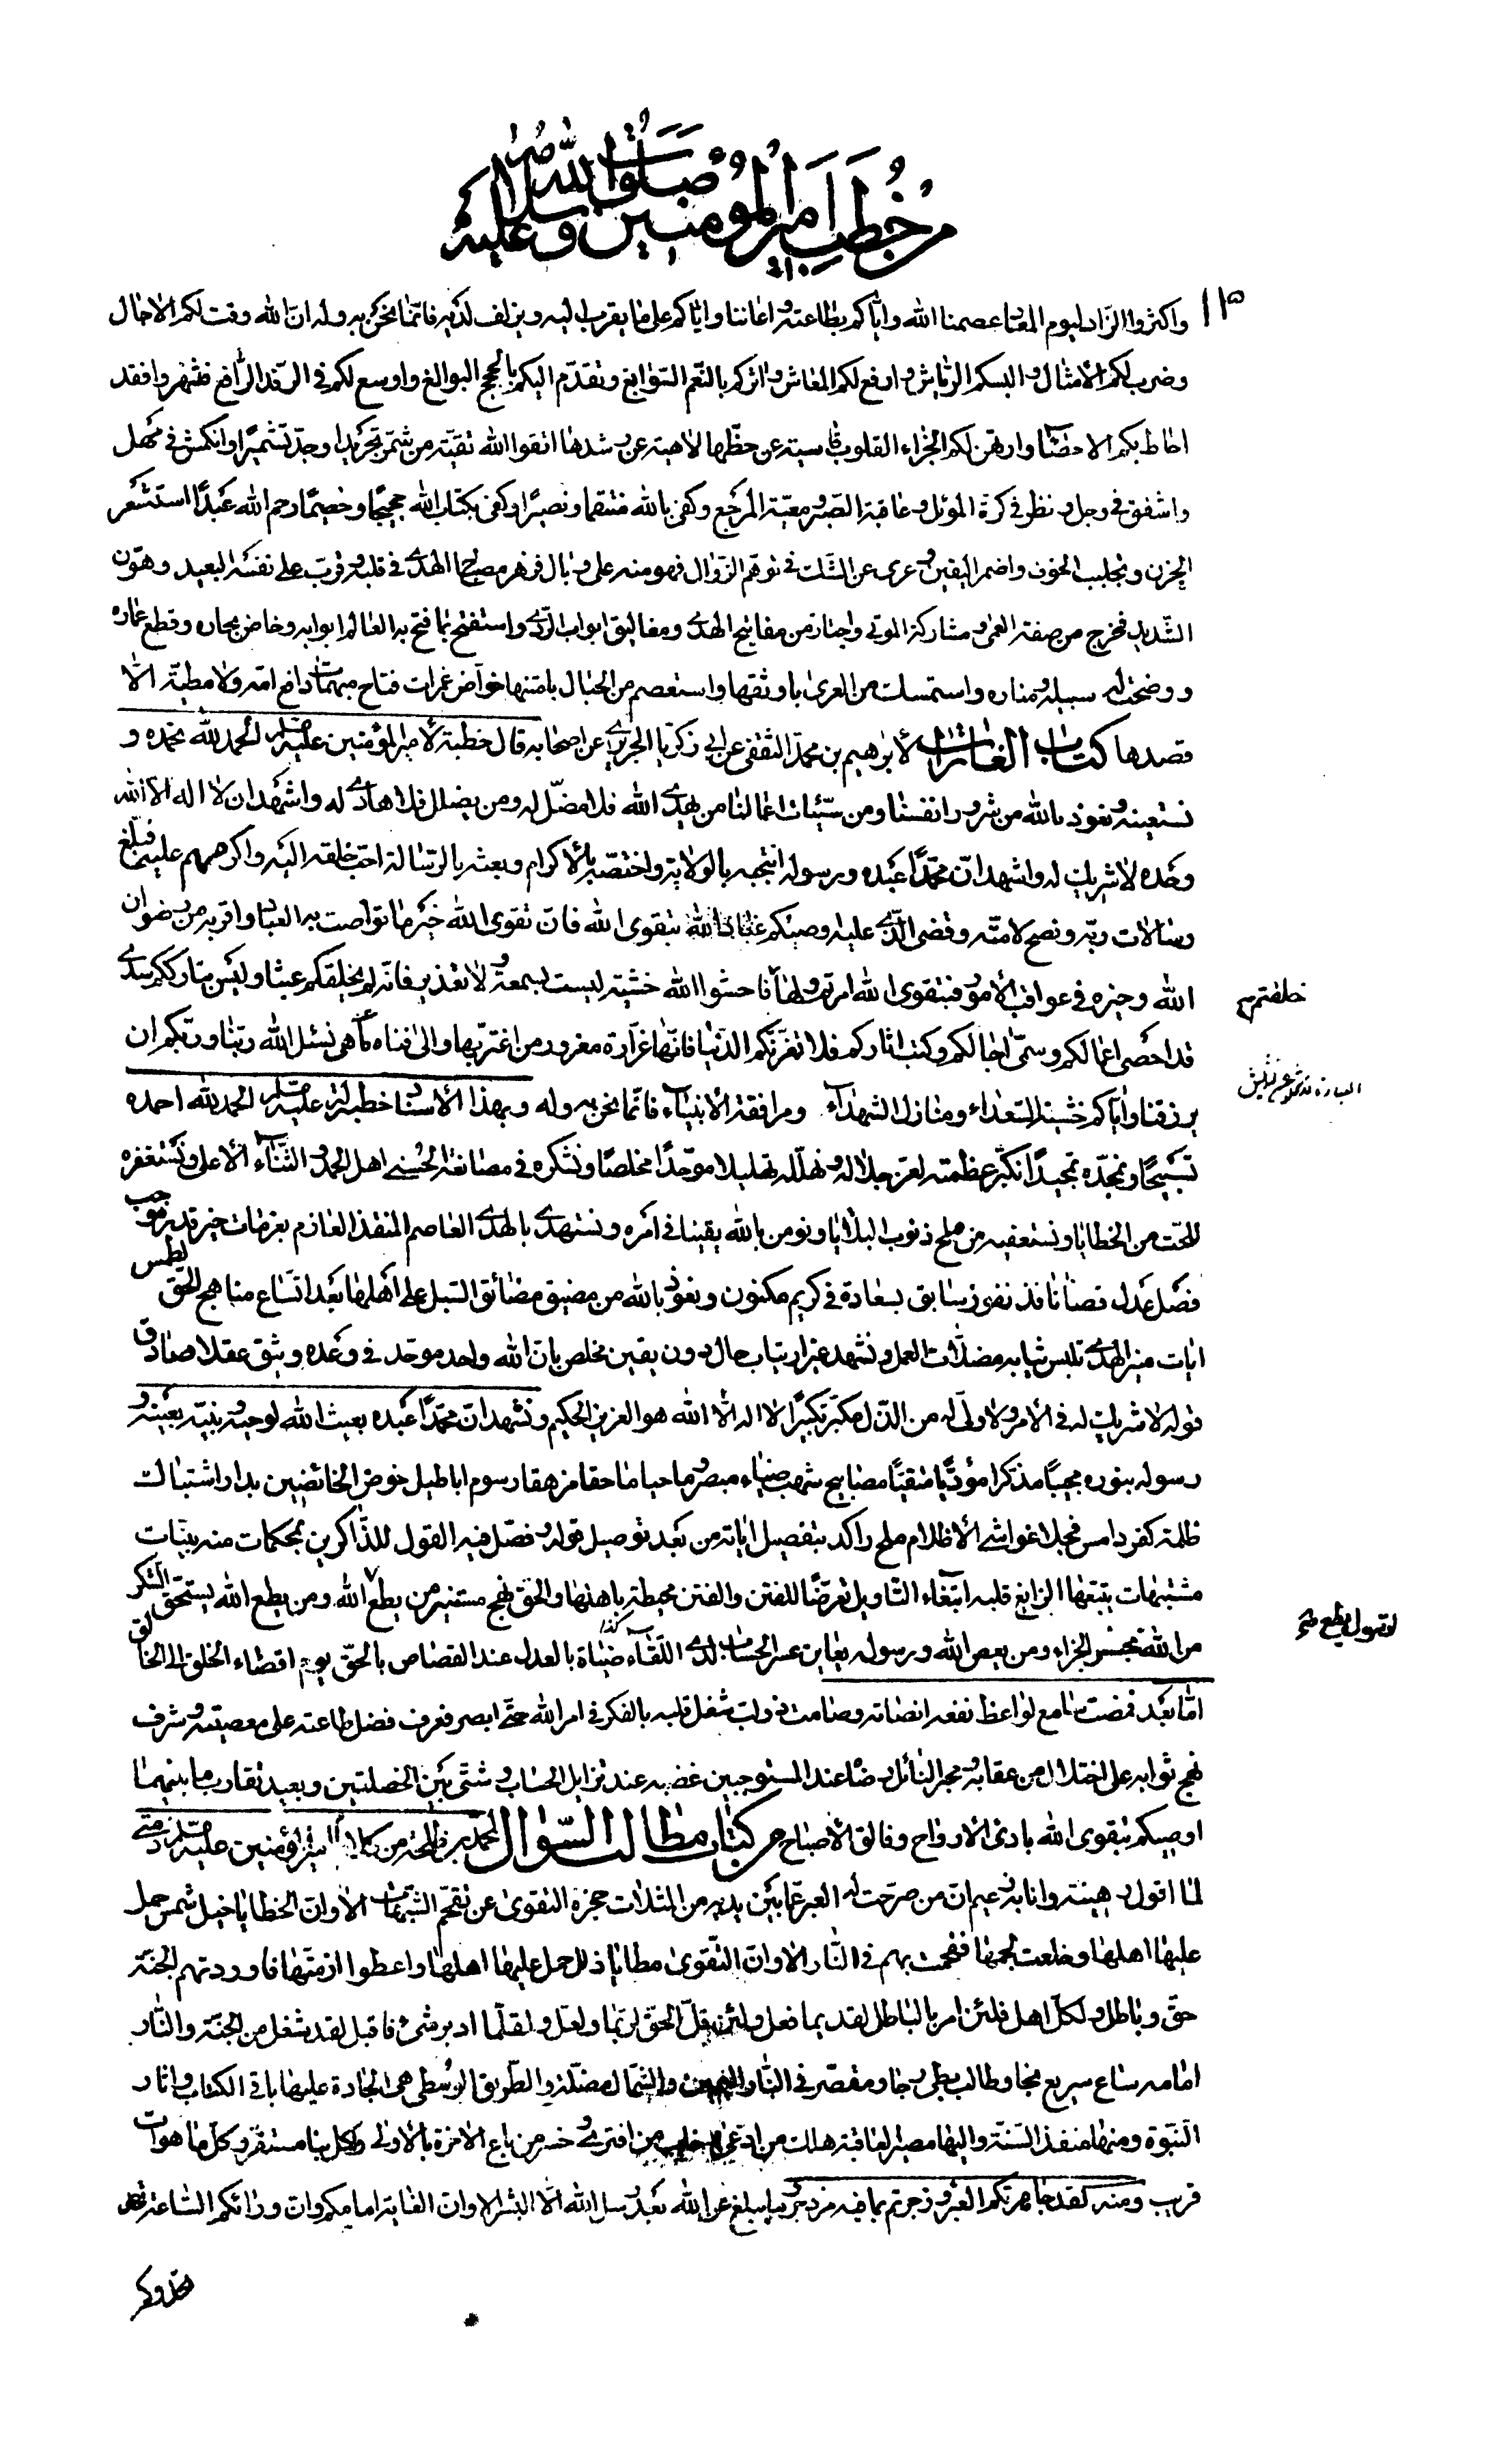 من خطب امير المؤمنين صلوات الله وسلامه عليه
١١٣
واكثروا الزاد ليوم المعاد عصمنا الله واياكم بطاعته واعاننا واياكم على ما يقرب اليه ويزلف لديه فانما نحن به وله ان الله وقت لكم الاجال
وضرب لكم الامثال والبسكم الرياش وارفع لكم المعاش واثركم بالنعم السوابغ وتقدم اليكم بالحجج البوالغ واوسع لكم في الرفد الرافع فشمروا فقد
احاط بكم الاحصاء وارتهن لكم الجزاء القلوب قاسية عن حظها لاهية عن رشدها اتقوا الله تقية من شمر تجريدا وجد تشميرا وانكمش في مهل
واشفق في وجل ونظر في كرة الموئل وعاقبة الصبر ومغبة المرجع وكفى بالله منتقما ونصيرا وكفى بكتاب الله حجيجا وخصيما رحم الله عبدا استشعر
الحزن وتجلبب الخوف واضمر اليقين وعرى عن الشك في توهم الزوال فهو منه على وبال فزهر مصباح الهدى في قلبه وقرب على نفسه البعيد وهون
الشديد فخرج من صفة العمى ومشاركة الموتى واجتاز من مفاتيح الهدى ومغاليق ابواب الردى واستفتح بما فتح به العالم ابوابه وخاض بحاره وقطع غماره
ووضحت له سبيله ومناره واستمسك من العرى باوثقها واستعصم من الحبال بامتنها خواض غمرات فتاح مبهمات دافع ولا مطية الا
قصدها كتاب الغارات لابراهيم بن محمد الثقفي عن ابي زكريا الجريري عن اصحابه قال خطبة لامير المؤمنين عليه السلم الحمد لله نحمده و
نستعينه ونعوذ بالله من شرور انفسنا ومن سيئات اعمالنا من يهدى الله فلا مضل له ومن يضلل فلا هادي له واشهد ان لا اله الا الله
وحده لا شريك له واشهد ان محمدا عبده ورسوله انتجبه بالولاية واختصه بالاكرام وبعثه بالرسالة احب خلقه اليه واكرمهم عليه فبلغ
رسالات ربه ونصح لامته وقضى الذى عليه اوصيكم عباد الله بتقوى الله فان تقوى الله خير ما تواصت به العباد واقربه من رضوان
الله وخيره في عواقب الامور فبتقوى الله امرتم ولها فاخشوا الله خشية ليست بسمعة ولا تعذير فانه لم يخلقكم عبثا وليس بتارككم سدى
خلقتم
قد احصى اعمالكم وسمى اجالكم وكتب اثاركم فلا تغرنكم الدنيا فانها غرارة مغرور من اغتر بها والى فناء ما هي نسئل الله ربنا وربكم ان
يرزقنا واياكم خشية السعداء ومنازل الشهداء ومرافقة الانبياء فانما نحن به وله وبهذا الاسناد خطبة له عليه السلم الحمد لله احمده
تسبيحا ونمجده تمجيدا نكبر عظمته لعز جلاله ونهلله تهليلا موحدا مخلصا ونشكره في مصانعة الحسنى اهل الحمد والثناء الاعلى ونستغفره
للحت من الخطايا ونستعفيه من ملح ذنوب البلايا ونومن بالله يقينا في امره ونستهدى بالهدى العاصم المنقذ العازم بعزمات خير قدر موجب
فصل عدل قضاء نافذ نفوز بسابق بسعادة في كريم مكنون ونعوذ بالله من مضيق مضائق السبل على اهلها بعد اتساع مناهج الحق لطمس
ايات منير الهدى تلبس ثيابه مضلات العمل ونشهد غير ارتياب حال دون يقين مخلص بان الله واحد موحد في وعده وثق عقلا صادق
قوله لا شريك له في الامر ولا ولى له من الذل مكبر تكبيرا لا اله الا الله هو العزيز الحكيم ونشهد ان محمدا عبده بعيث الله لوحيه ونبيه بعينه و
رسوله بنوره مجيبا مذكرا مؤديا متقيا مصابيح شهب ضياء مبصر وماحيا ماحقا مزهقا رسوم اباطيل خوض الخائضين بدار اشتباك
ظلمة كفر دامس فجلا غواشى الاظلام ملح راكد بتفصيل اياته من بعد توصيل قوله وفصل فيه القول للذاكرين بمحكمات منه بينات
مشتبهات يتبعها الزايغ قلبه ابتغاء التاويل تعرضا للفتن والفتن محيطة باهلها والحق نهج مستنير من يطع الله ومن يطع الله يستحق الشكر
من الله بحسن الجزاء ومن يعص الله ورسوله يعاين عسر الحساب لدى اللقاء قضاء بالعدل عند القصاص بالحق يوم افضاء الخلق الى الخالق
اما بعد فمنصت سامع لواعظ نفعه انصاته وصامت ذو لب شغل قلبه بالفكر في امر الله حتى ابصر فعرف فضل طاعته على معصيته وشرف
نهج ثوابه على اختلال من عقابه ومخبر النائل رضاه عند المستوجبين غضبه عند تزايل الحساب وشتى بين الخصلتين وبعيد تقارب ما بينهما
اوصيكم بتقوى الله بارئ الارواح وفالق الاصباح من كتاب مطالب السؤال لمحمد بن طلحة من كلام امير المؤمنين عليه السلم ذمتى
لما اقول رهينة وانا به زعيم ان من صرحت له العبر عما بين يديه من المثلات حجزه التقوى عن تقحم الشبهات الا وان الخطايا خيل شمس حمل
عليها اهلها وخلعت لجمها فقحمت بهم في النار الا وان التقوى مطايا ذلل حمل عليها اهلها واعطوا ازمتها فاوردتهم الجنة
حق وباطل ولكل اهل فلئن امر الباطل لقديما فعل ولئن قل الحق لربما ولعل ولقلما ادبر شئ فاقبل لقد شغل من الجنة والنار
امامه ساع سريع نجا وطالب بطئ رجا ومقصر في النار اليمين والشمال مضلة والطريق الوسطى هي الجادة عليها باقى الكتاب واثار
النبوة ومنها منفذ السنة واليها مصير العاقبة هلك من ادعى وخاب من افترى وخسر من باع الاخرة بالاولى ولكل نبا مستقر وكل ما هو ات
قريب ومنه لقد جاهرتكم العبر وزجرتم بما فيه مزدجر وما يبلغ عن الله بعد رسل الله الا البشر الا وان الغاية امامكم وان وراءكم الساعة تحدوكم
تحدوكم